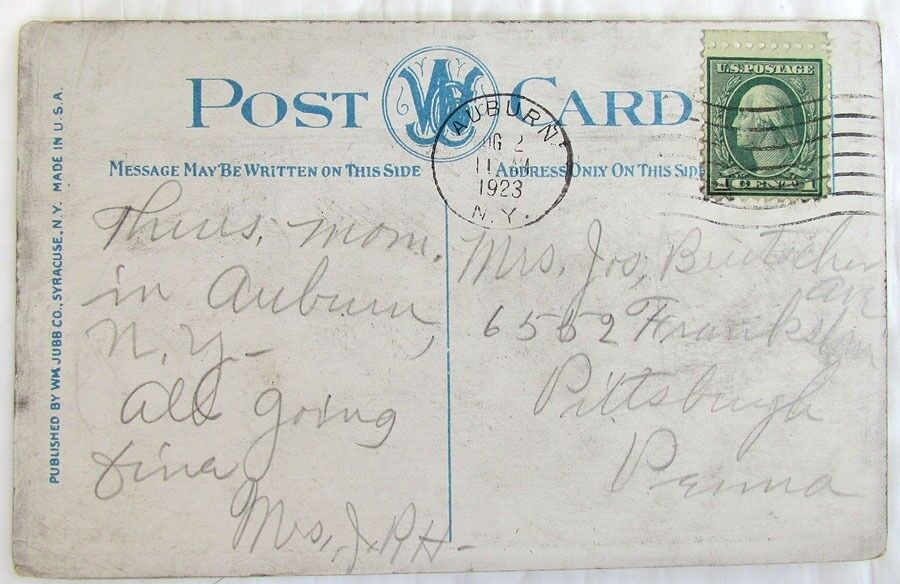 POST CARD
MESSAGE MAY BE WRITTEN ON THIS SIDE
ADDRESS ONLY ON THIS SIDE
PUBLISHED BY WM. JUBB CO., SYRACUSE, N.Y. MADE IN U.S.A.
AUBURN
2
11 AM
1923
N.Y.
U.S. POSTAGE
1 CENT 1
Thurs. mom.
in Auburn,
N.Y.-
all going
fine
Mrs. J.R.H-
Mrs. Jos,
6552
Pittsburgh
Penna